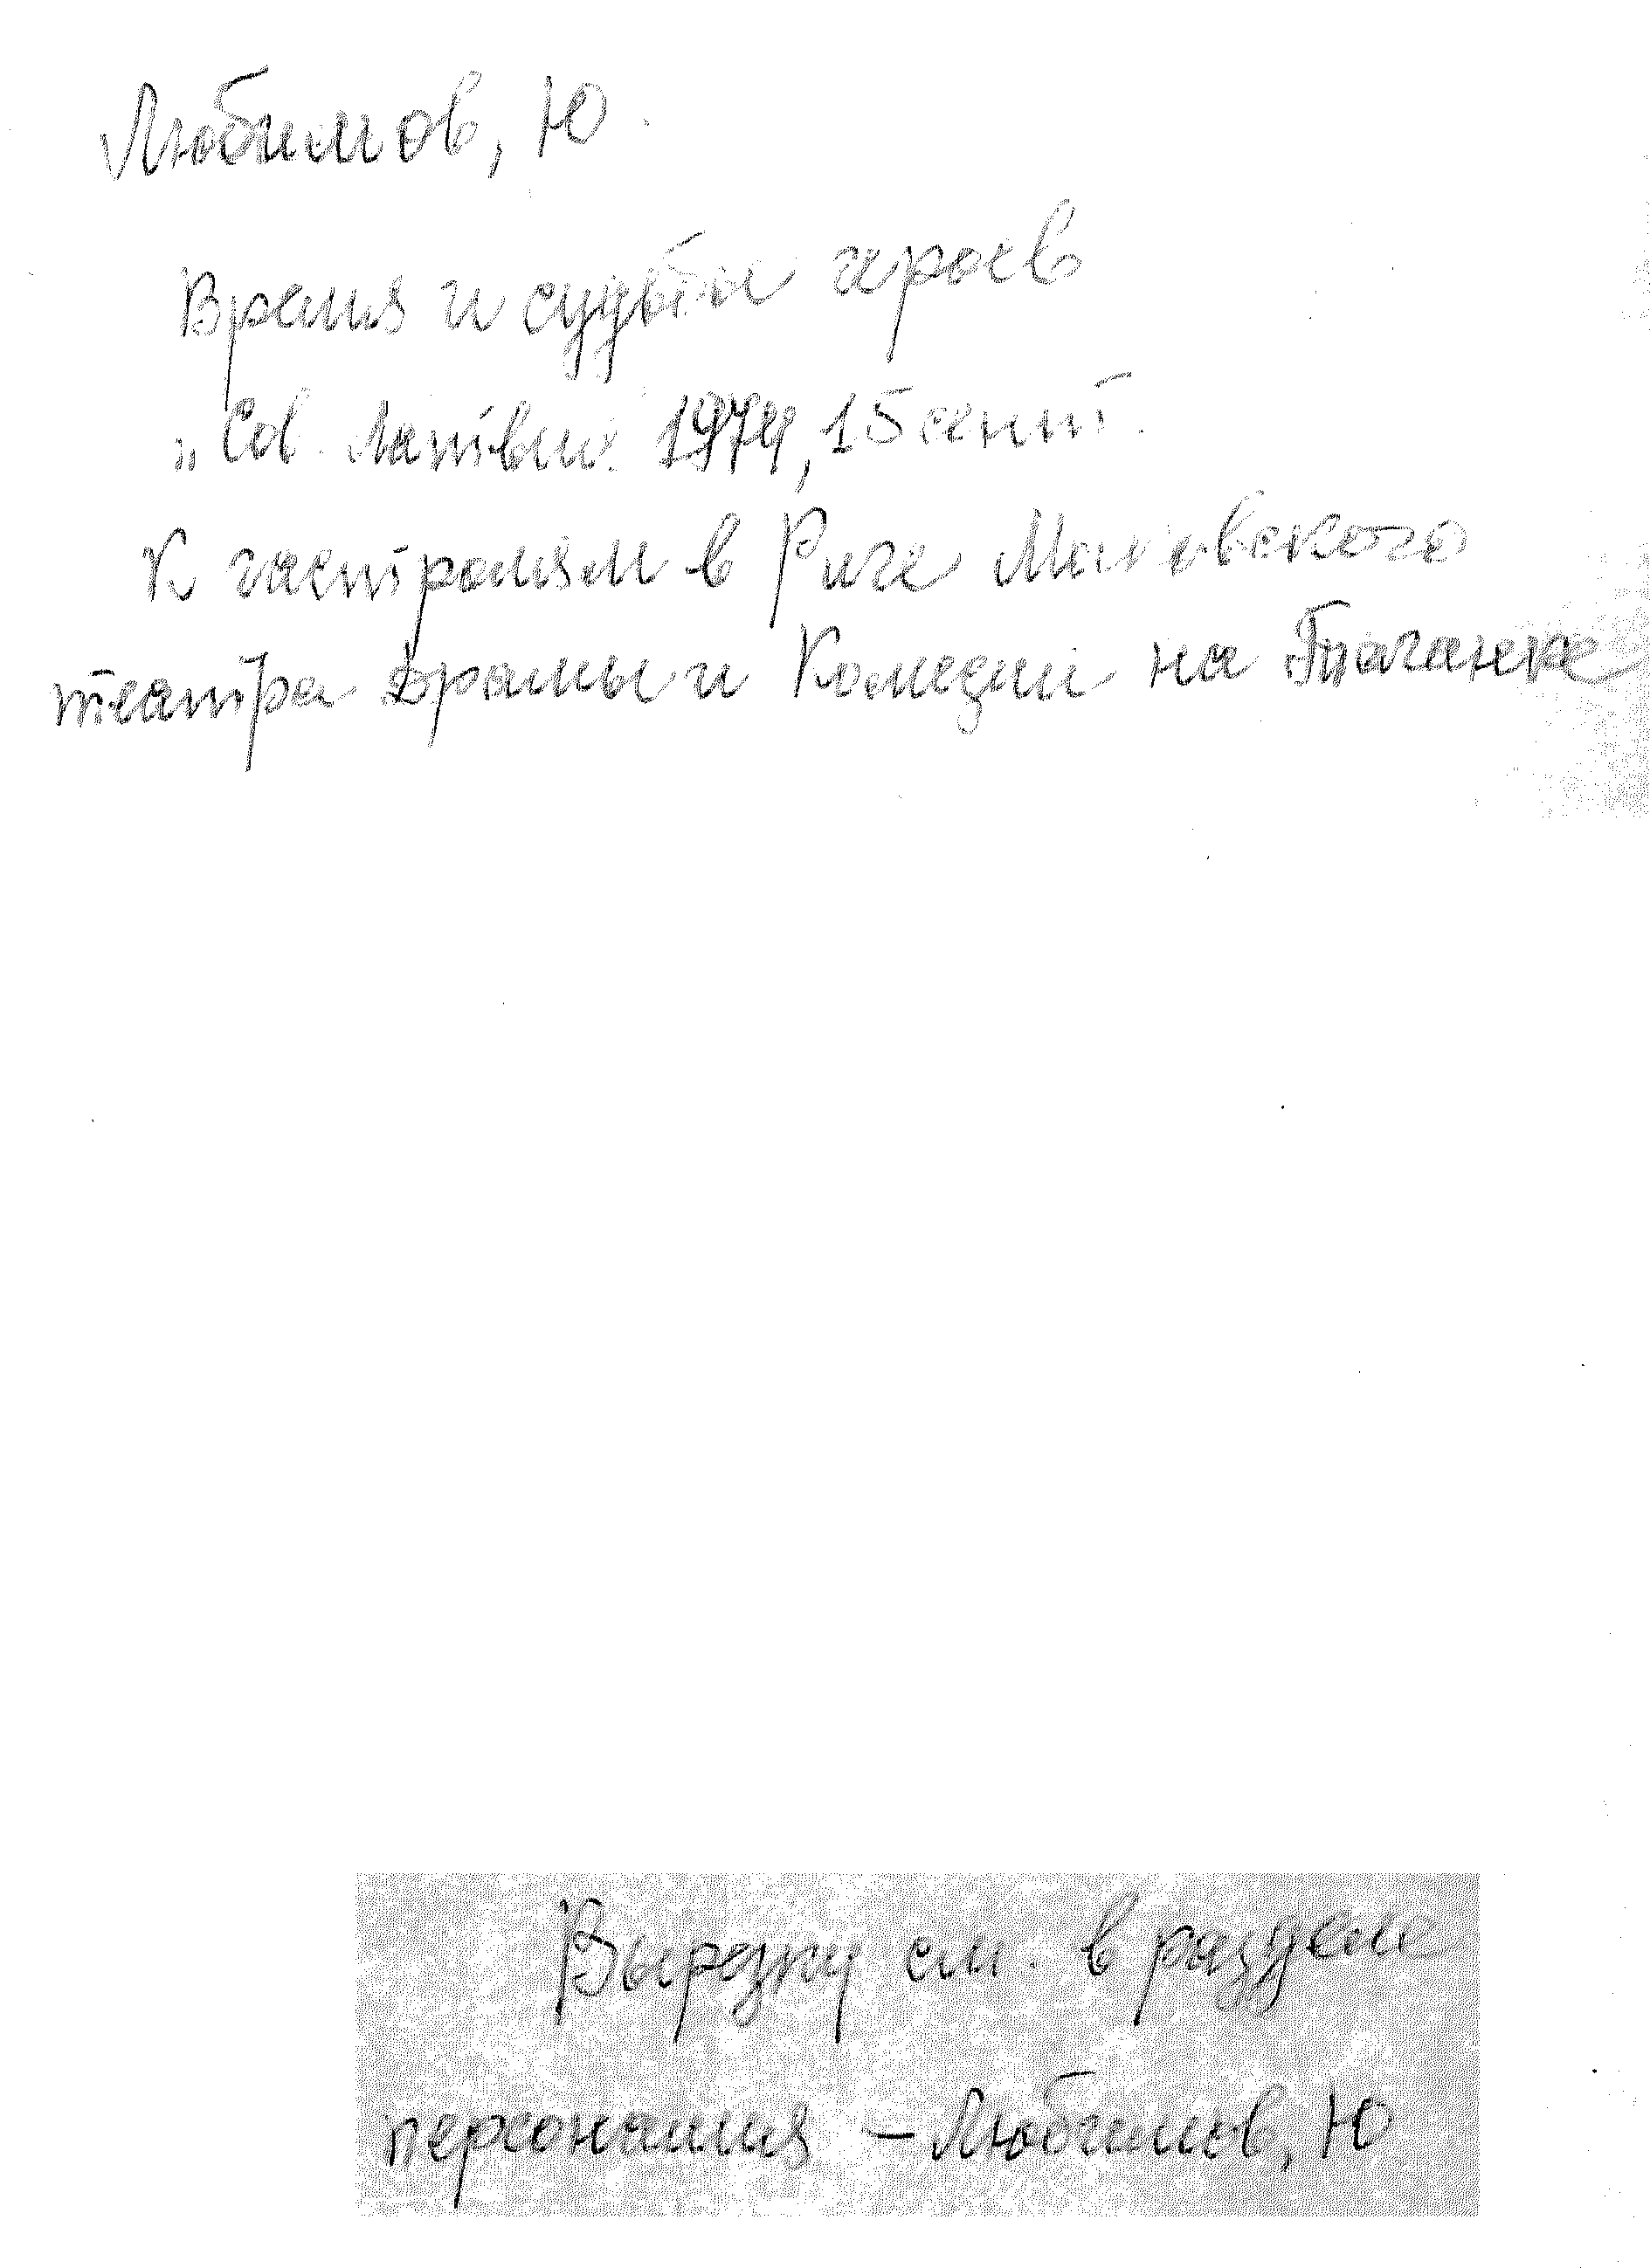 Любимов, Ю.
Время и судьбы героев
„Сов. Латвия" 1974, 15 сент.
К гастролям в Риге Московского
театра Драмы и Комедии на Таганке
Вырезку см. в разделе
персоналия – Любимов, Ю